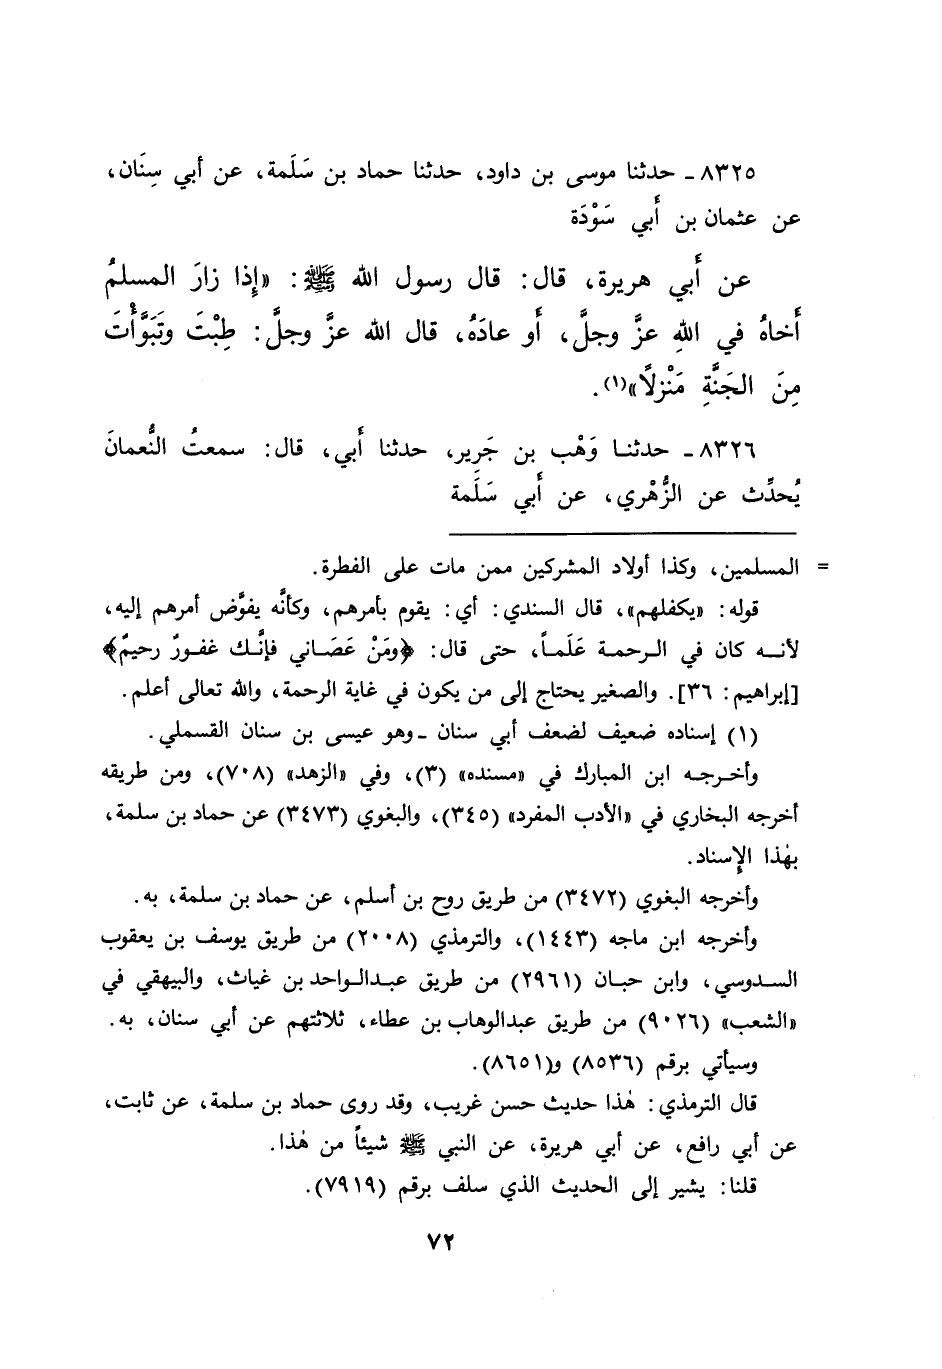 ٨٣٢٥ ـ حدثنا موسى بن داود، حدثنا حماد بن سَلَمة، عن أبي سِنَان،
عن عثمان بن أَبي سَوْدَة
عن أَبي هريرة، قال: قال رسول الله ﷺ: «إِذا زارَ المسلمُ
أَخاهُ في اللهِ عزَّ وجلَّ، أَو عادَهُ، قال الله عزَّ وجلَّ: طِبْتَ وتَبَوَّأْتَ
مِنَ الجَنَّةِ مَنْزِلًا»(١).
٨٣٢٦ ـ حدثنا وَهْب بن جَرِير، حدثنا أَبي، قال: سمعتُ النُّعمانَ
يُحدِّث عن الزُّهْري، عن أَبي سَلَمة
= المسلمين، وكذا أولاد المشركين ممن مات على الفطرة.
قوله: «يكفلهم»، قال السندي: أي: يقوم بأمرهم، وكأنَّه يفوَّض أمرهم إليه،
لأنه كان في الرحمة عَلَماً، حتى قال: ﴿ومَنْ عَصَاني فإنَّك غفورٌ رحيمٌ﴾
[إبراهيم: ٣٦]. والصغير يحتاج إلى من يكون في غاية الرحمة، والله تعالى أعلم.
(١) إسناده ضعيف لضعف أبي سنان ـ وهو عيسى بن سنان القسملي.
وأخرجه ابن المبارك في «مسنده» (٣)، وفي «الزهد» (٧٠٨)، ومن طريقه
أخرجه البخاري في «الأدب المفرد» (٣٤٥)، والبغوي (٣٤٧٣) عن حماد بن سلمة،
بهٰذا الإِسناد.
وأخرجه البغوي (٣٤٧٢) من طريق روح بن أسلم، عن حماد بن سلمة، به.
وأخرجه ابن ماجه (١٤٤٣)، والترمذي (٢٠٠٨) من طريق يوسف بن يعقوب
السدوسي، وابن حبان (٢٩٦١) من طريق عبدالواحد بن غياث، والبيهقي في
«الشعب» (٩٠٢٦) من طريق عبدالوهاب بن عطاء، ثلاثتهم عن أبي سنان، به.
وسيأتي برقم (٨٥٣٦) و(٨٦٥١).
قال الترمذي: هٰذا حديث حسن غريب، وقد روى حماد بن سلمة، عن ثابت،
عن أبي رافع، عن أبي هريرة، عن النبي ﷺ شيئاً من هٰذا.
قلنا: يشير إلى الحديث الذي سلف برقم (٧٩١٩).
٧٢